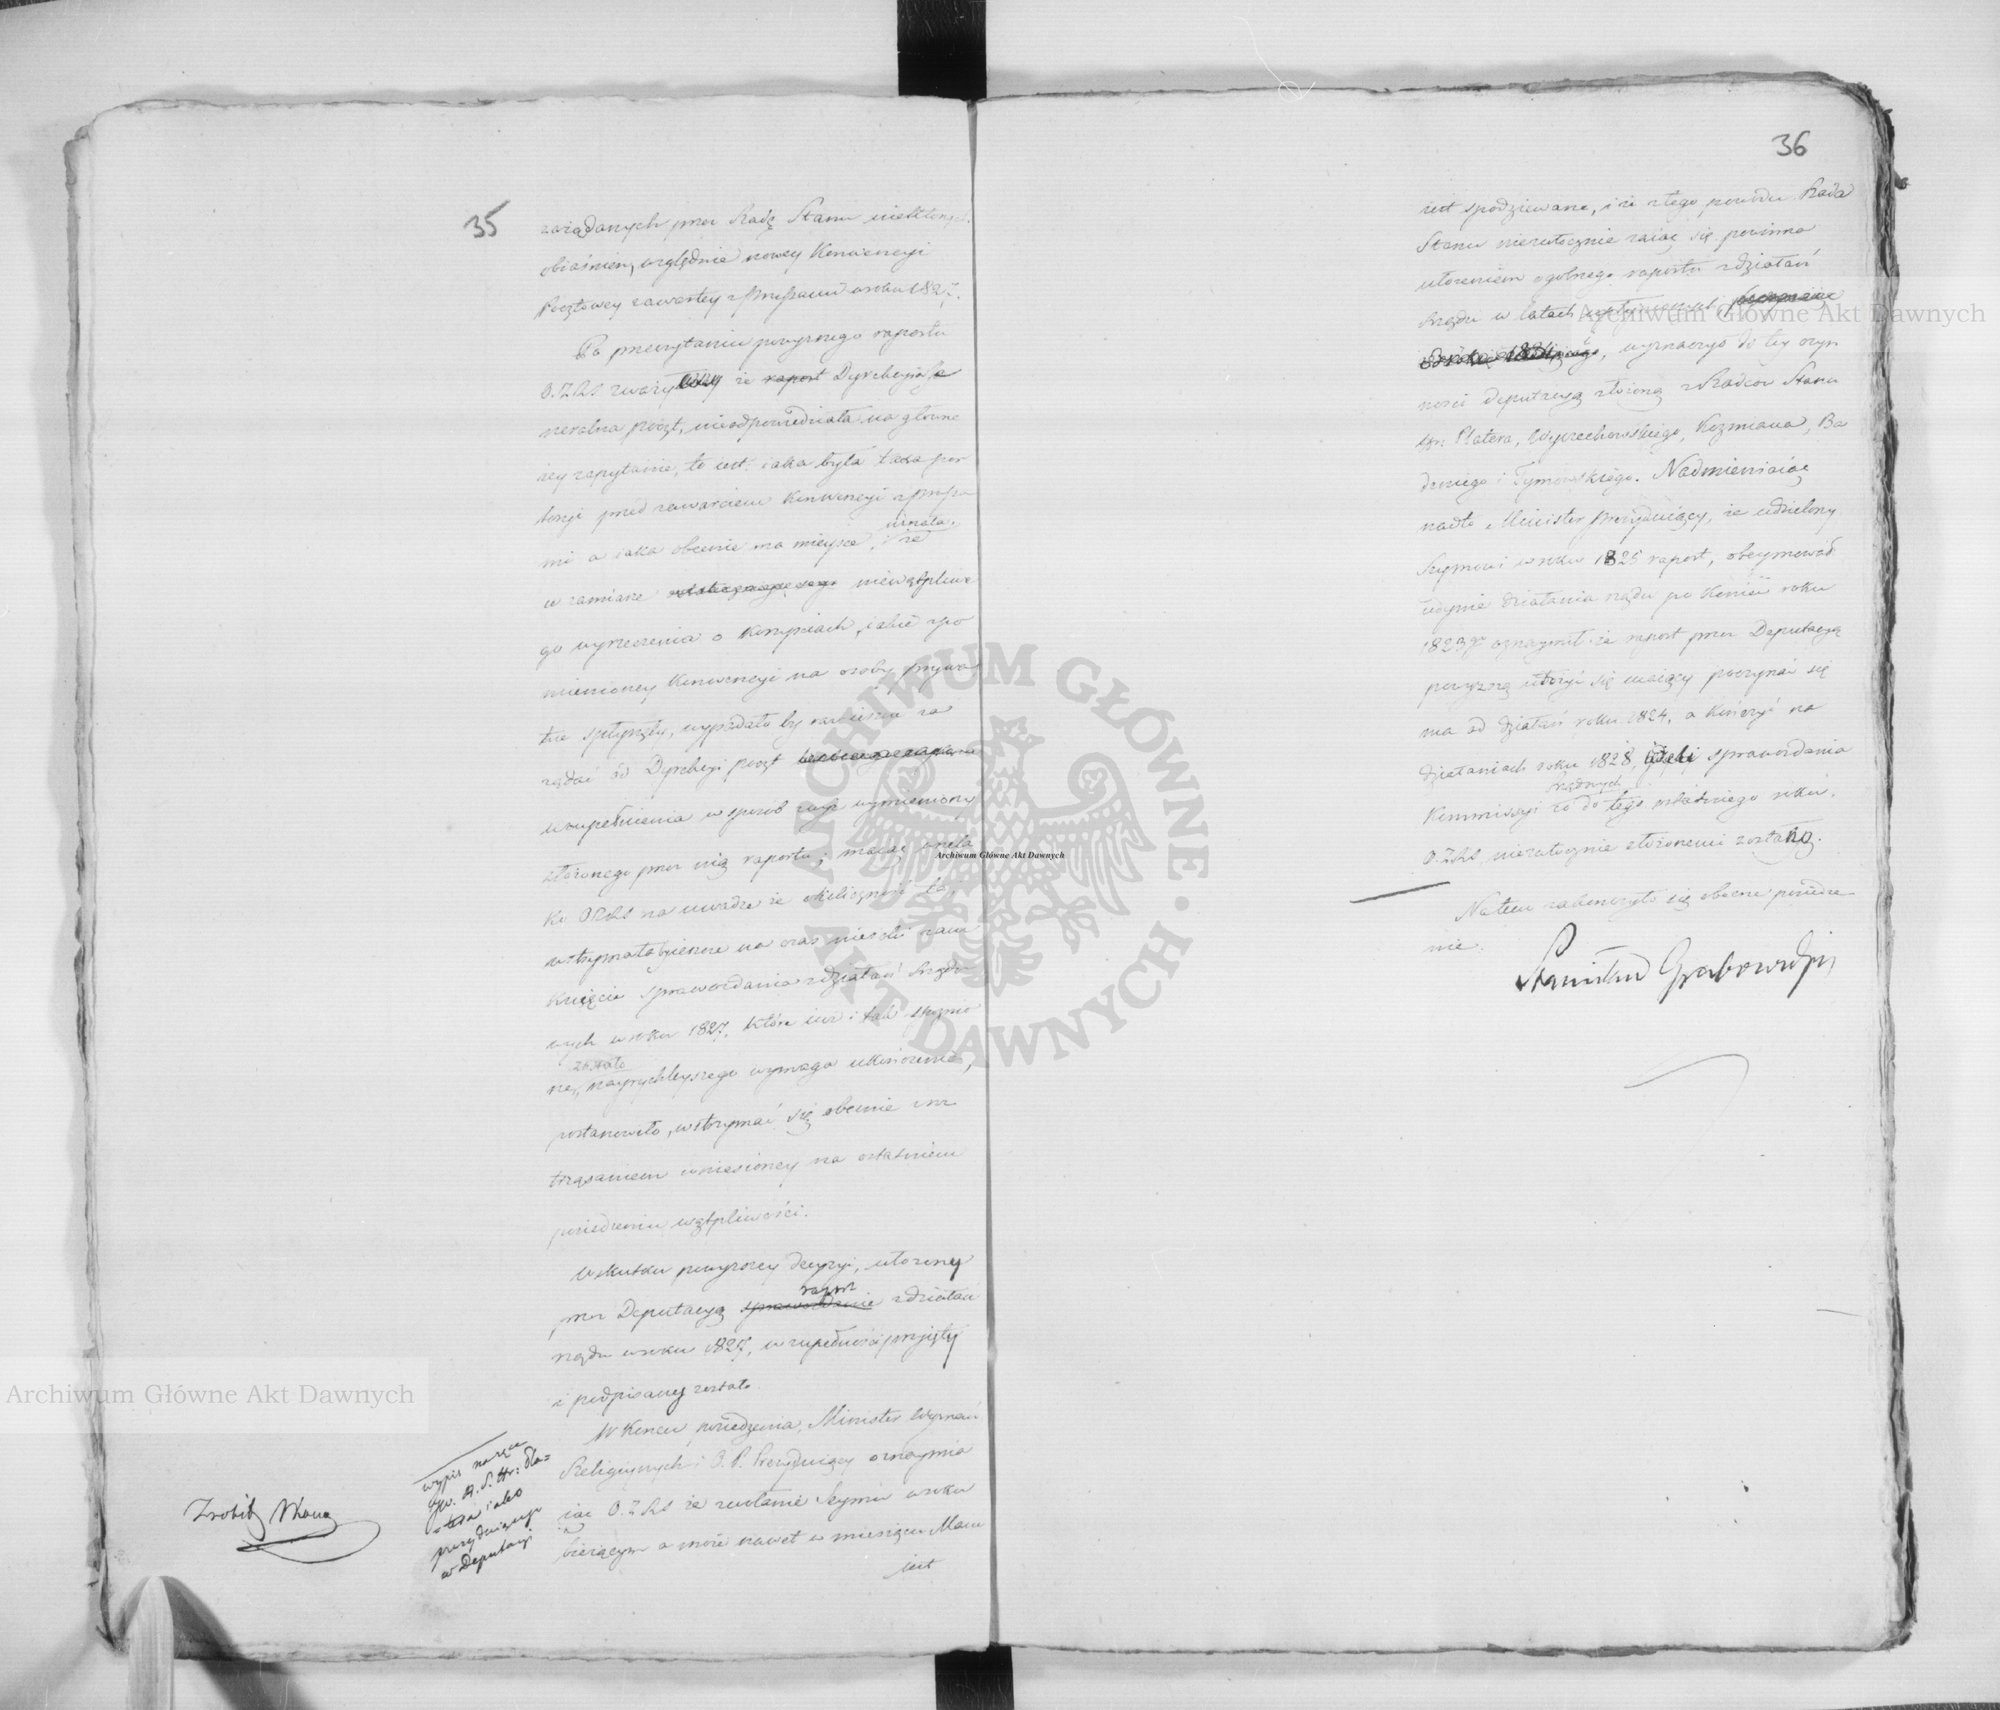 35
zażądanych przez Radę Stanu niektórych
obiaśnień, względnie nowey Konwencyi
Pocztowey zawartey z Prussami w roku 1827.
Po przeczytaniu powyższego raportu
O.Z.R.S. zważywszy że raport Dyrekcyia Je
neralna poczt, nieodpowiedziała na główne
iey zapytanie, to iest: iaka była taxa por
toryi przed zawarciem Konwencyi z Prussa
mi a iaka obecnie ma mieysce, i że
winata.
w zamiarze niewątpliwe
go wyrzeczenia o korzyściach, iakie z po
mienioney Konwencyi na osoby prywa
tne spłynęły, wypadało by raz ieszcze za
żądać od Dyrekcyi poczt
uzupełnienia w sposób wyż wymieniony
złożonego przez nią raportu; maiąc wszela
ko O.Z.R.S. na uwadze że okoliczność ta,
wstrzymałaby ieszcze na czas nieiaki zam
knięcie sprawozdania z działań Rządo
wych w roku 1827. które iuż i tak spóźnio
zostało
ne, nayrychleyszego wymaga ukończenia,
postanowiło, wstrzymać się obecnie z roz
trząsaniem wniesioney na ostatniem
posiedzeniu wątpliwości.
W skutku powyższey decyzyi, ułożony
raport
przez Deputacyą sprawozdanie z działań
rządu w roku 1827, w zupełności przyięty
i podpisany został.
W końcu posiedzenia, Minister Wyznań
Religiynych i O. P. Prezyduiący oznaymia
iąc O.Z.R.S. że zwołanie Seymu w roku
bieżącym a może nawet w miesiącu Maiu
iest
wypis na ręce
JW. A. S. Hr: Pla=
tera iako
prezyduiącego
w Deputacyi
Zrobił
36
iest spodziewane, i że z tego powodu Rada
Stanu niezwłocznie zaiąć się powinna
ułożeniem ogólnego raportu z działań
Rządu w latach upłynionych
wyznaczył do tey czyn
ności deputacyą złożoną z Radców Stanu
Hr: Platera, Wyczechowskiego, Koźmiana, Ba
deniego i Tymowskiego. Nadmieniaiąc
nadto Minister Prezyduiący, że udzielony
Seymowi w roku 1825 raport, obeymował
iedynie działania rządu po koniec roku
1823go oznaymił: że raport przez Deputacyą
powyższą ułożyć się maiący poczynać się
ma od działań roku 1824, a kończyć na
działaniach roku 1828, sprawozdania
Rządowych
Kommissyi za do tego ostatniego roku.
O.Z.R.S. niezwłocznie złożonemi zostaną.
Na tem zakończyło się obecne posiedze
nie.
Stanisław Grabowski
Archiwum Główne Akt Dawnych
Archiwum Główne Akt Dawnych
Archiwum Główne Akt Dawnych
ARCHIWUM GŁÓWNE AKT DAWNYCH